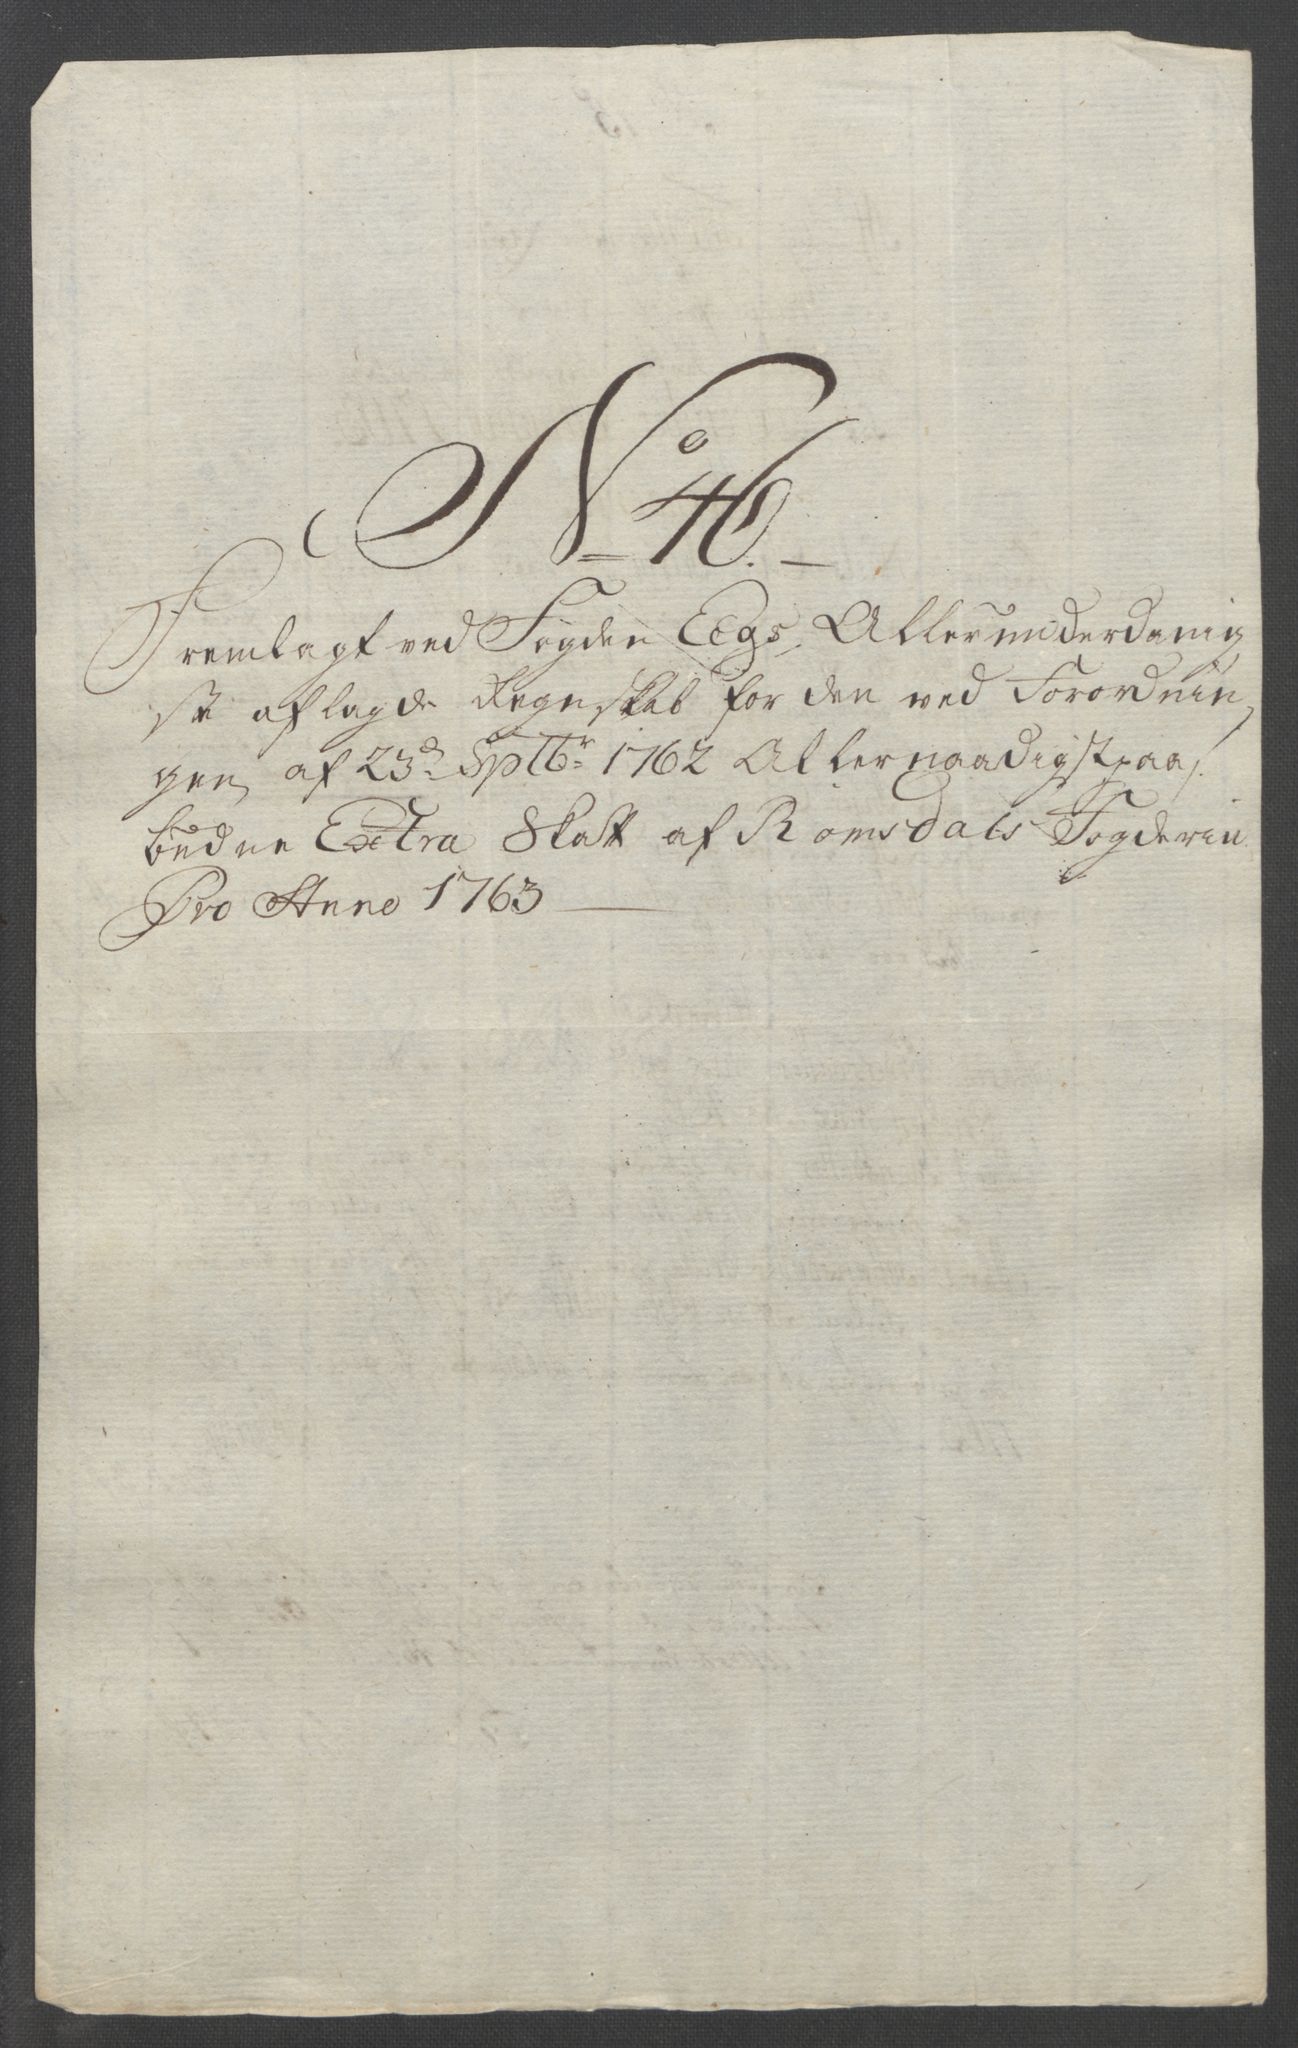 No 46.
Fremlagt ved Fogden Eegs Allerunderdanig
ste aflagde Regnskab for den ved Forordnin
gen af 23d Sptbr 1762 Allernaadigst paa
budne Extra Skatt af Romsdals Fogderie
Pro Anno 1763